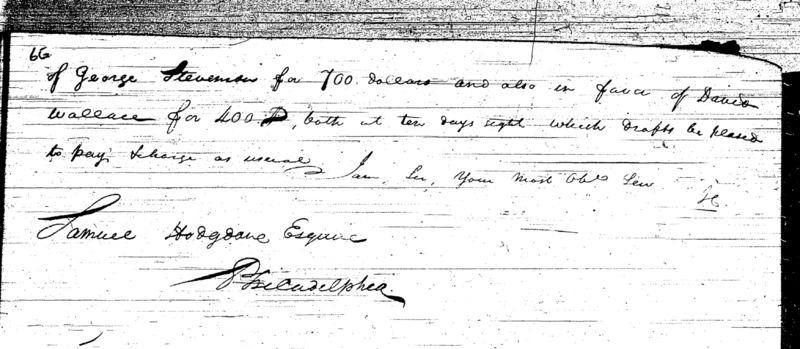 66
of George Stevenson for 700 dollars and also in favor of David
Wallace for 400 D, both at ten days sight which drafts be pleased
to pay & charge as usual I am, Sir, Your most Obt Serv
Samuel Hodgdone Esquire
Philadelphia